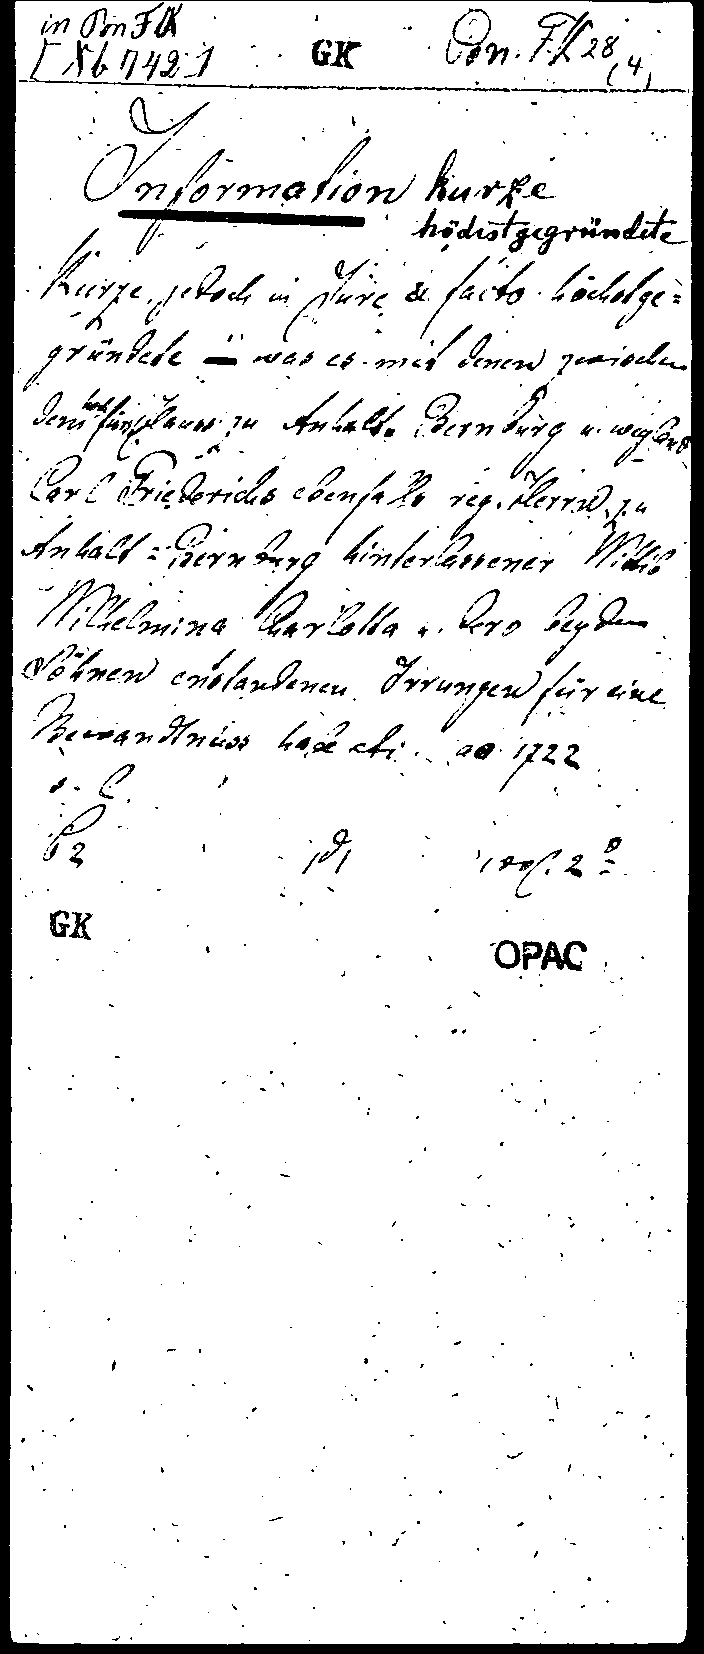 in Pon FK
[Nb 742] GK Pon. FK 28 (4)
Information kurze
höchstgegründete
Kurze, jedoch in Jure & facto höchstge=
gründete — was es mit denen zwischen
dem hochfürstl. Hause zu Anhalt-Bernburg u. weyland
Carl Friederichs ebenfalls reg. Herrn zu
Anhalt=Bernburg hinterlassener Wittib
Wilhelmina Charlotta u. dero beyden
Söhnen entstandenen Irrungen für eine
Bewandtnüss habe etc. ao 1722
s. l.
GK
OPAC